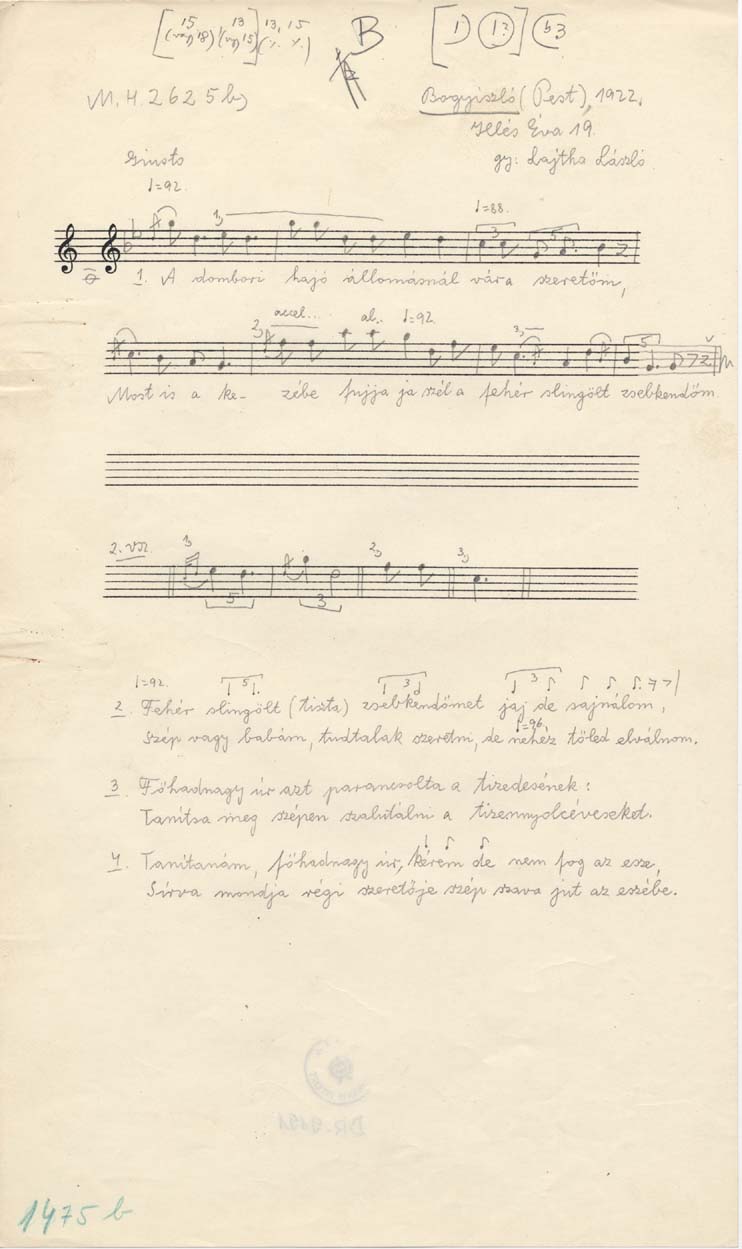 15 13 13, 15 B 1) 1? b3
(vagy 18) (vagy 15)
M. H. 2625 b) Bogyiszló (Pest), 1922.
Illés Éva 19.
Giusto gy: Lajtha László
♩=92.
1) ♩=88.
3 5
1. A dombori hajó állomásnál vára szeretöm,
2) accel... al.. ♩=92. 3) 5
Most is a ke- zébe fujja ja szél a fehér slingölt zsebkendöm
2. vsz. 1) 2) 3)
5 3
♩=92. 5 3 3
2. Fehér slingölt (tiszta) zsebkendömet jaj de sajnálom,
♩=96.
Szép vagy babám, tudtalak szeretni, de nehéz töled elválnom.
3. Föhadnagy úr azt parancsolta a tizedesének:
Tanítsa meg szépen szalutálni a tizennyolcéveseket.
4. Tanítanám, föhadnagy úr, kérem de nem fog az esze,
Sírva mondja régi szeretője szép szava jut az eszébe.
1475 b